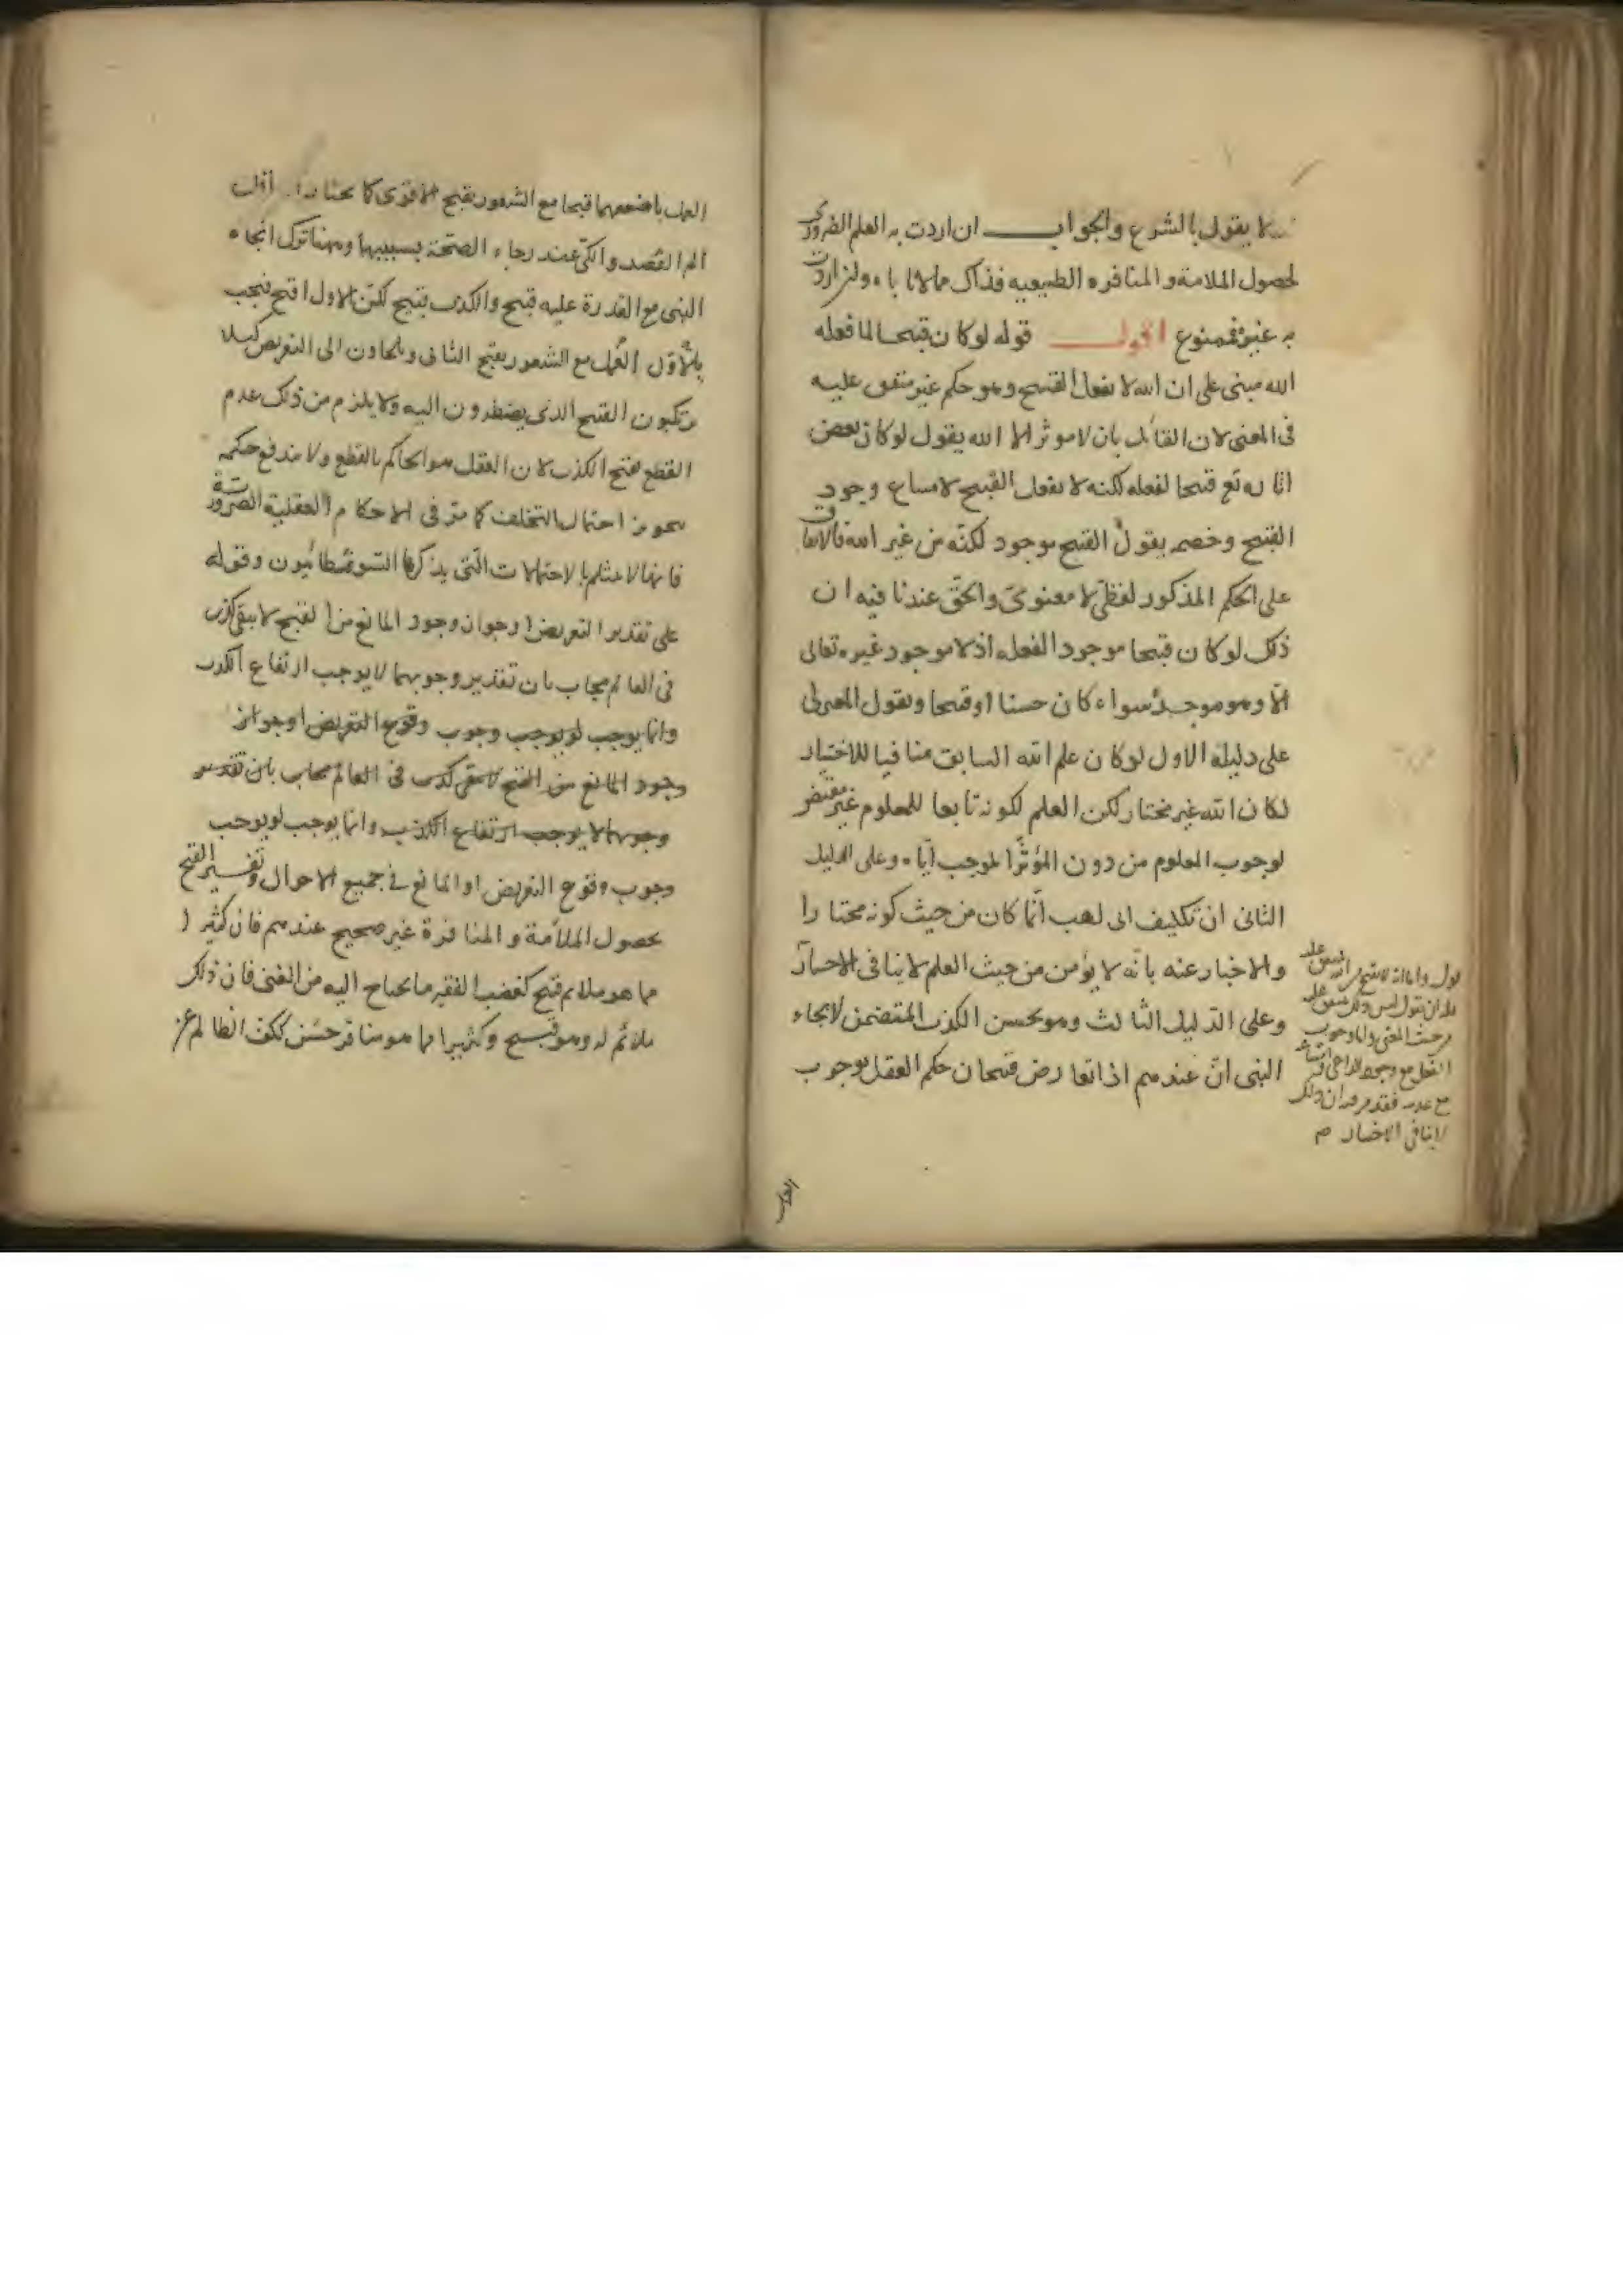 لا يقول بالشرع والجواب ان اردت به العلم الضرورى
لحصول الملامة والمنافره الطبيعيه فذاك مما لا اباه ولئن اردت
به غيره فممنوع اقول قوله لو كان قبيحا لما فعله
الله مبنى على ان الله لا يفعل القبيح وهو حكم غير متفق عليه
فى المعنى لان القائل بان لا موثر الا الله يقول لو كان بعض
قبيحا لفعله لكنه لا يفعل القبيح لامتناع وجود
القبيح وخصمه يقول القبيح موجود لكنه من غير الله فالاتفاق
على الحكم المذكور لفظى لا معنوى والحق عندنا فيه ان
ذلك لو كان قبيحا موجود الفعله اذ لا موجود غيره تعالى
الا وهو موجده سواء كان حسنا او قبيحا ويقول المعتزلى
على دليله الاول لو كان علم الله السابق منافيا للاختيار
لكان الله غير مختار لكن العلم لكونه تابعا للمعلوم غير مقتض
لوجوب المعلوم من دون المؤثر الموجب اياه وعلى الدليل
الثانى ان تكليف ابى لهب انما كان من حيث كونه مختارا
والاخبار عنه بانه لا يؤمن من حيث العلم لا ينافى الاختيار
وعلى الدليل الثالث وهو تحسن الكذب المتضمن لانجاء
النبى ان عندهم اذا تعارض قبيحان حكم العقل بوجوب
من حيث المعنى واما وجوب
الفعل مع وجود الداعى
مع عدمه فقد مر ان ذلك
لا ينافى الاختيار
العمل باضعفهما قبحا مع الشعور بقبح الاقوى كما
الم الفصد والكى عند رجاء الصحة بسببهما وههنا ترك انجاء
النبى مع القدرة عليه قبيح والكذب قبيح لكن الاول اقبح فيجب
العمل مع الشعور بقبح الثانى ويلجاون الى التعريض كيلا
يرتكبون القبيح الذى يضطرون اليه ولا يلزم من ذلك عدم
القطع بقبح الكذب لان العقل هو الحاكم بالقطع ولا يندفع حكمه
بتجويز احتمال التخلف كما مر فى الاحكام العقلية الضرورية
فانها لا تنثلم بالاحتمالات التى يذكرها السوفسطائيون وقوله
على تقدير التعريض او جواز وجود المانع من القبح لا يبقى كذب
فى العالم يجاب بان تقدير وجوبهما لا يوجب ارتفاع الكذب
وانما يوجب لو يوجب وجوب وقوع التعريض او جواز
وجود المانع من القبح لا يبقى كذب فى العالم يجاب بان تقدير
وجوبهما لا يوجب ارتفاع الكذب وانما يوجب لو يوجب
وجوب وقوع التعريض او المانع فى جميع الاحوال وتفسير القبح
بحصول الملأمة والمنافرة غير صحيح عندهم فان كثيرا
مما هو ملائم قبيح كغضب الفقير ما يحتاج اليه من الغنى فان ذلك
ملائم له وهو قبيح وكثيرا مما هو منافر حسن ككف الظالم عن